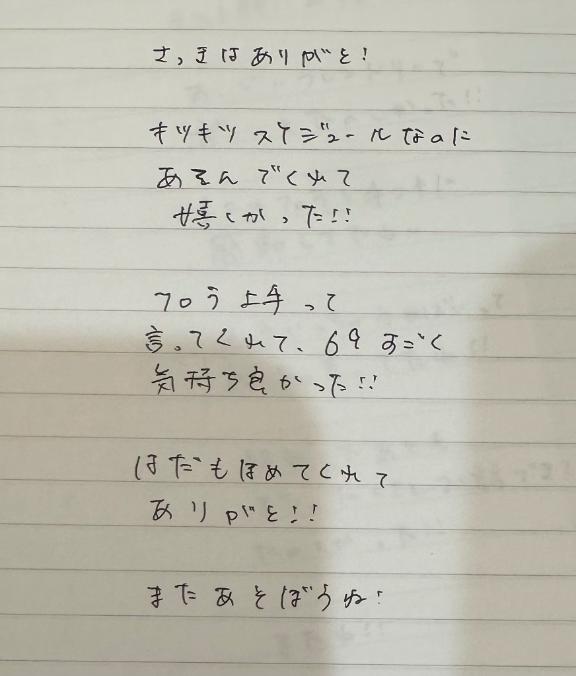 さっきはありがと!
キツキツスケジュールなのに
あそんでくれて
嬉しかった!!
フロう上手って
言ってくれて、69すごく
気持ち良かった!!
はだもほめてくれて
ありがと!!
またあそぼうね!